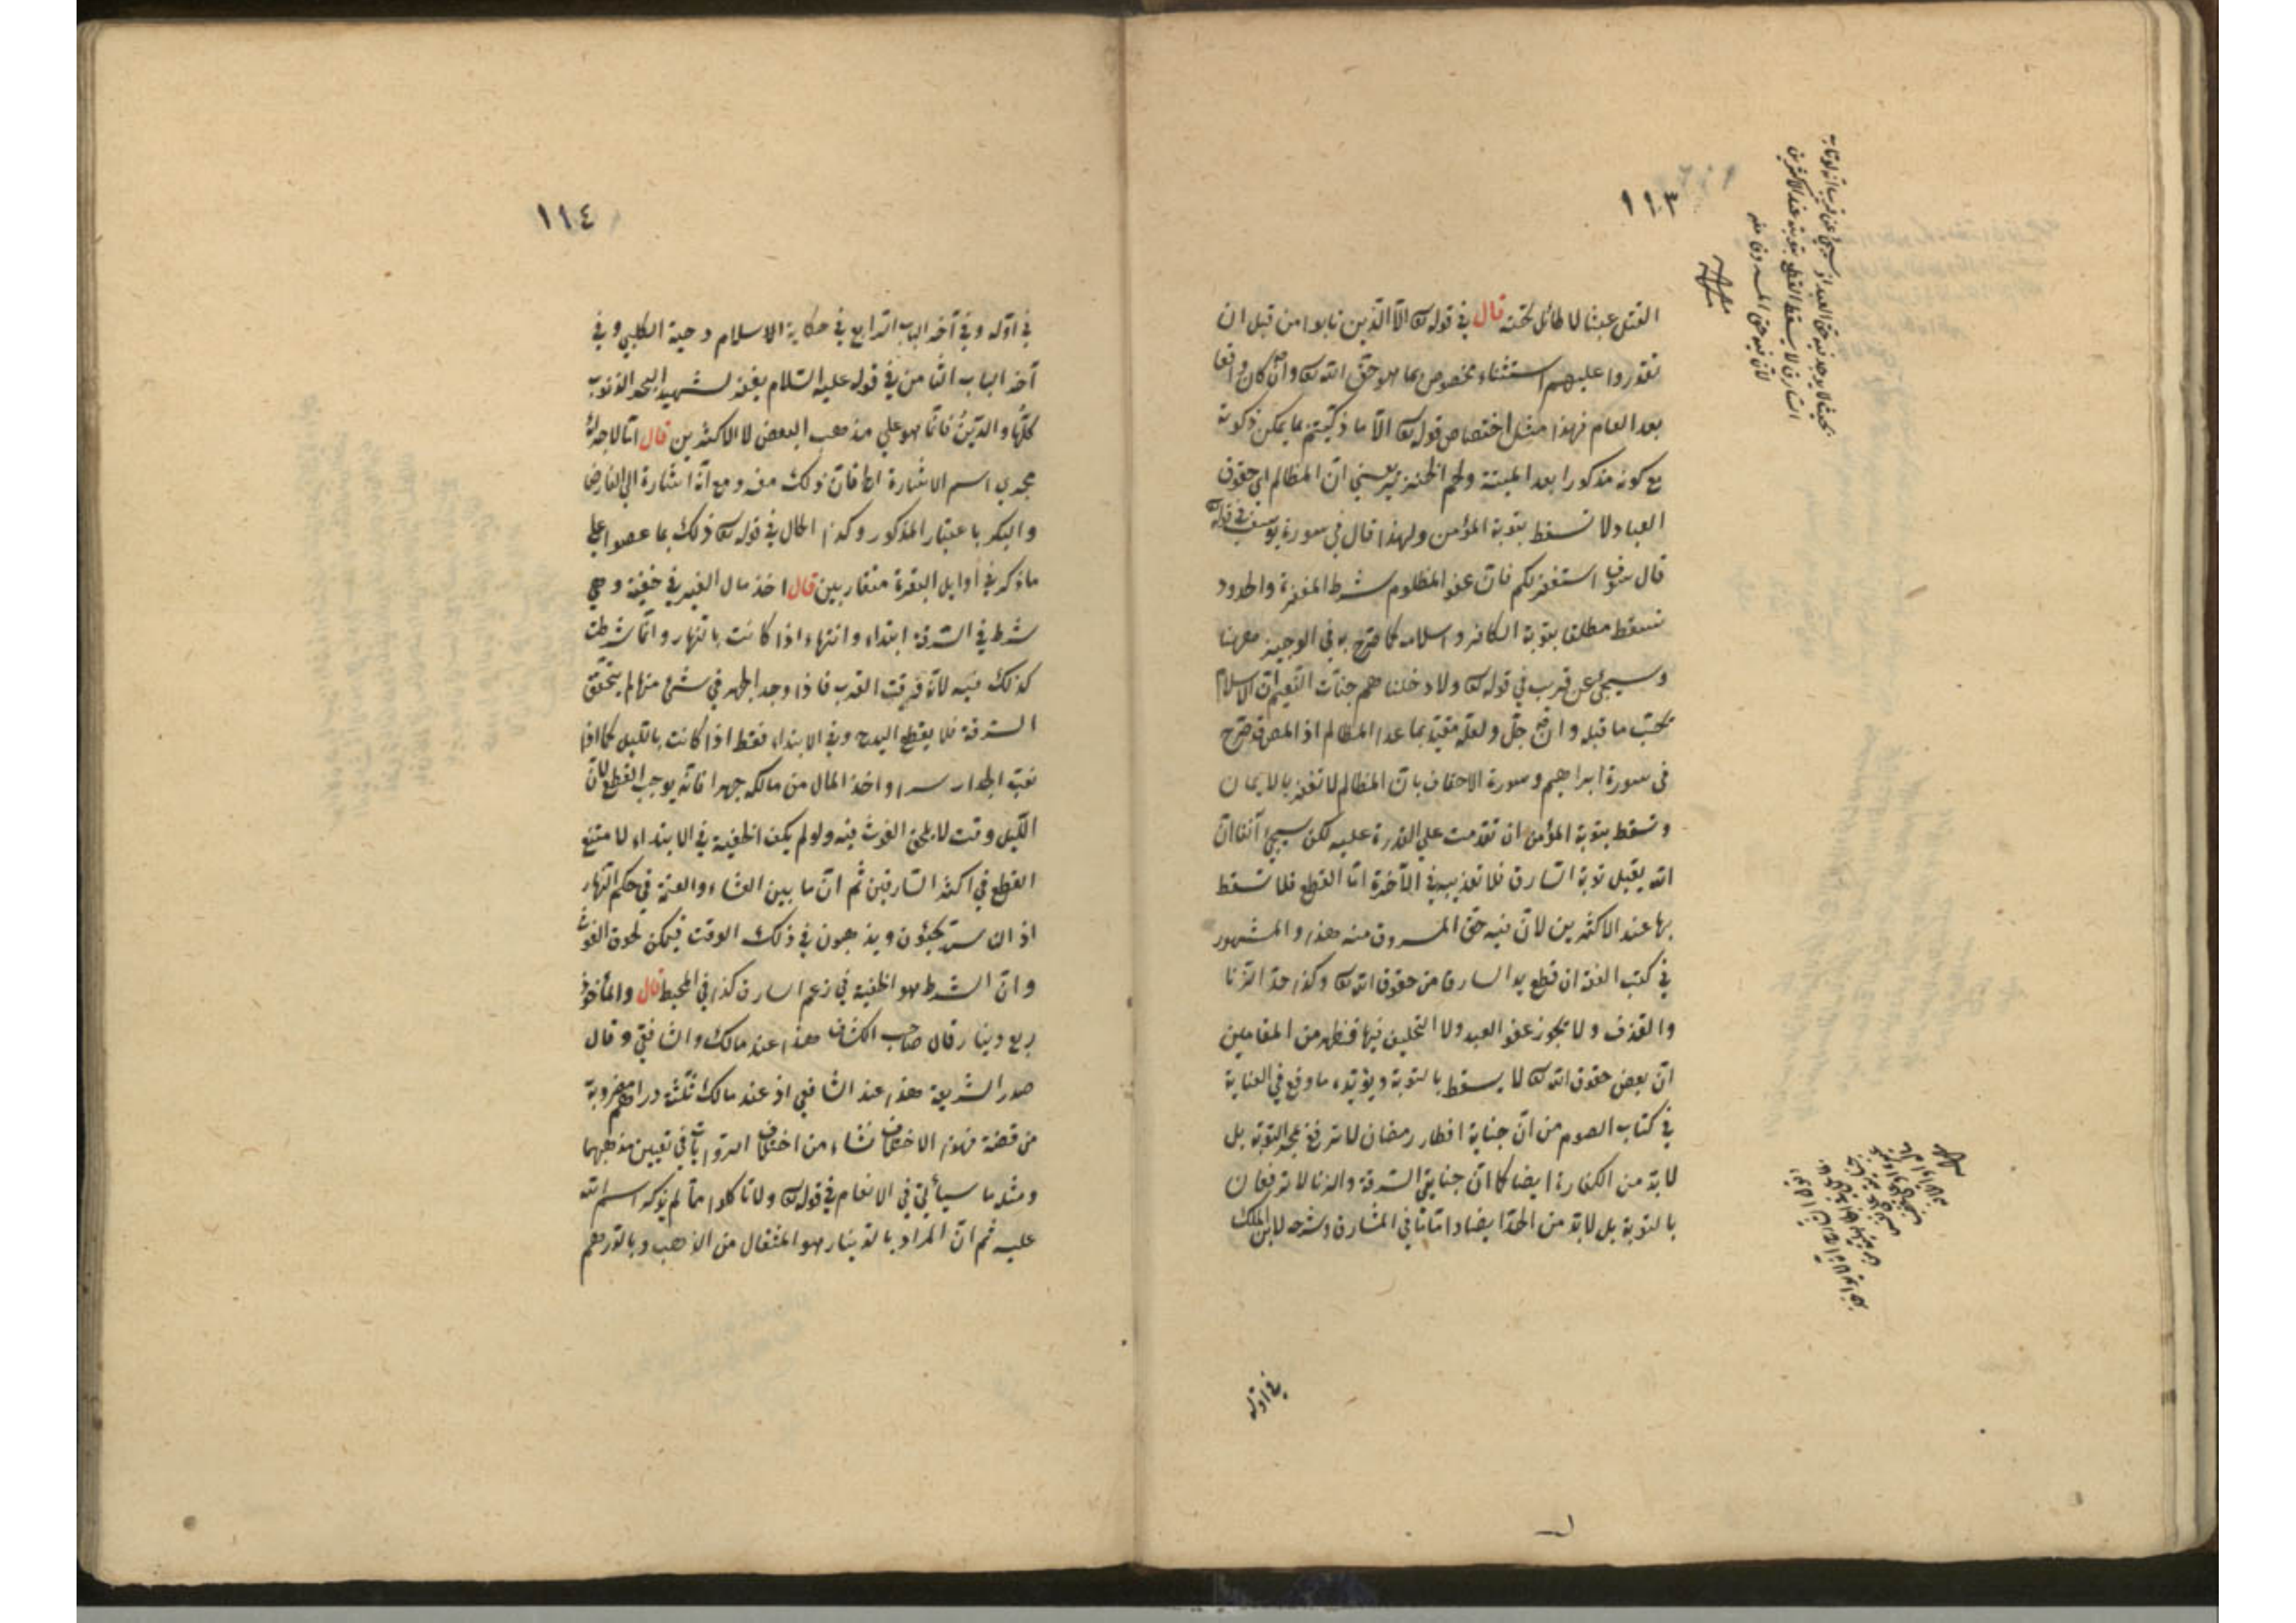 ١١٣
القتل عبثا لا طائل تحته قال في قوله تع الا الذين تابوا من قبل ان
تقدروا عليهم استثناء مخصوص بما هو حق الله تع وان كان واقعا
بعد العام فهذا مثل اختصاص قوله تع الا ما ذكيتم بما يمكن ذكوته
مع كونه مذكورا بعد الميتة ولحم الخنزير يعني ان المظالم اي حقوق
العباد لا تسقط بتوبة المؤمن ولهذا قال في سورة يوسف في قوله تع
قال سوف استغفر لكم فان عفو المظلوم شرط المغفرة والحدود
تسقط مطلقا بتوبة الكافر واسلامه كما صرح به في الوجيز ههنا
وسيجئ عن قريب في قوله تع ولادخلناهم جنات النعيم ان الاسلام
يجب ما قبله وان جل ولعله مقيد بما عدا المظالم اذ المص قد صرح
في سورة ابراهيم وسورة الاحقاف بان المظالم لا تغفر بالايمان
وتسقط بتوبة المؤمن ان تقدمت على القدرة عليه لكن سيجئ آنفا ان
الله يقبل توبة السارق فلا تعذيبه في الآخرة اما القطع فلا تسقط
بها عند الاكثرين لان فيه حق المسروق منه هذا والمشهور
في كتب الفقه ان قطع يد السارق من حقوق الله تع وكذا حد الزنا
والقذف ولا يجوز عفو العبد ولا التحليف فيها فظهر من المقامين
ان بعض حقوق الله تع لا يسقط بالتوبة ويؤيده ما وقع في العناية
في كتاب الصوم من ان جناية افطار رمضان لا ترتفع بمجرد التوبة بل
لا بد من الكفارة ايضا كما ان جنايتي السرقة والزنا لا ترتفعان
بالتوبة بل لا بد من الحد ايضا واما ما في المشارق وشرحه لابن الملك
في اوله
السارق لا يسقط القطع بتوبته عند الاكثرين
لان فيه حق المسروق منه
١١٤
في اوله وفي آخر الباب الرابع في حكاية الاسلام دحية الكلبي وفي
آخر الباب الثامن في قوله عليه السلام يغفر لشهيد البحر الذنوب
كلها والدين فانما هو على مذهب البعض لا الاكثرين قال انما لاجرائه
مجرى اسم الاشارة اه فان ذلك مفرد مع انه اشارة الى الفارض
والبكر باعتبار المذكور وكذا الحال في قوله تع ذلك بما عصوا على
ما ذكر في اوايل البقرة متقاربين قال اخذ مال الغير في خفية وهي
شرط في السرقة ابتداء وانتهاء اذا كانت بالنهار وانما شرطت
كذلك فيه لانه وقت الغوث فاذا وجد الجهر في شئ منها لم يتحقق
السرقة فلا يقطع اليد وفي الابتداء فقط اذا كانت بالليل كما اذا
نقب الجدار سرا واخذ المال من مالكه جهرا فانه يوجب القطع لان
الليل وقت لا يلحق الغوث فيه ولو لم يكف الخفية في الابتداء لامتنع
القطع في اكثر السارقين ثم ان ما بين العشاء والعتمة في حكم النهار
اذ الناس يجيئون ويذهبون في ذلك الوقت فيمكن لحوق الغوث
وان الشرط هو الخفية في زعم السارق كذا في المحيط قال والمأخوذ
ربع دينار قال صاحب الكشاف هذا عند مالك والشافعي وقال
صدر الشريعة هذا عند الشافعي اذ عند مالك ثلثة دراهم مضروبة
من فضة فهذا الاختلاف نشاء من اختلاف الروايات في تعيين مذهبهما
ومثله ما سيأتي في الانعام في قوله تع ولا تأكلوا مما لم يذكر اسم الله
عليه ثم ان المراد بالدينار هو المثقال من الذهب وبالدرهم